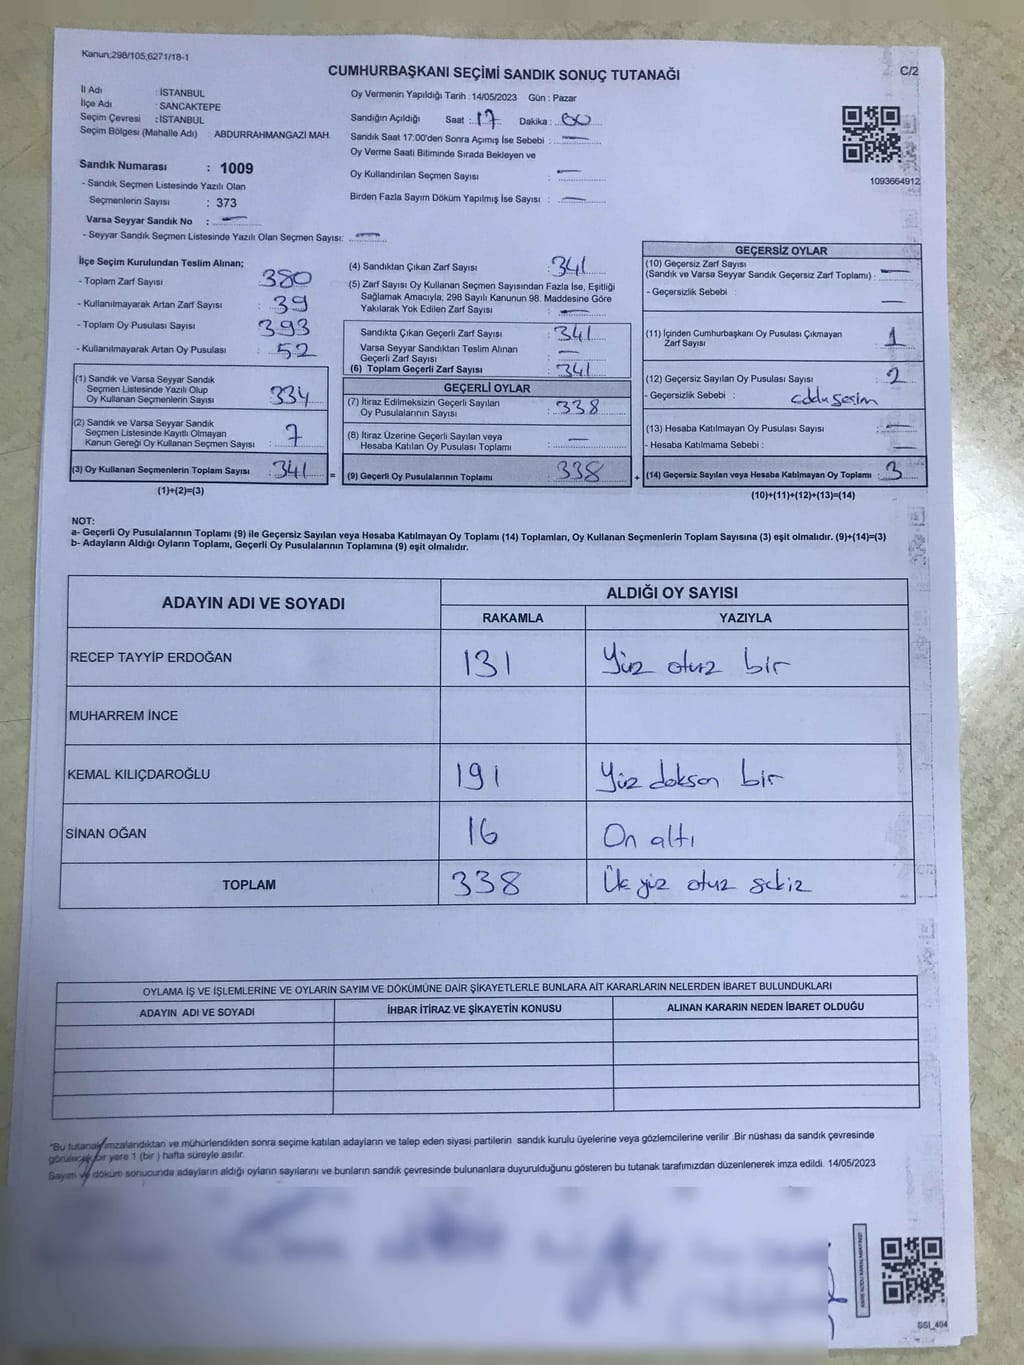 Kanun;298/105,6271/18-1
CUMHURBAŞKANI SEÇİMİ SANDIK SONUÇ TUTANAĞI
C/2
İl Adı : İSTANBUL
İlçe Adı : SANCAKTEPE
Seçim Çevresi : İSTANBUL
Seçim Bölgesi (Mahalle Adı) : ABDURRAHMANGAZİ MAH.
Sandık Numarası : 1009
- Sandık Seçmen Listesinde Yazılı Olan
Seçmenlerin Sayısı : 373
Varsa Seyyar Sandık No : —
- Seyyar Sandık Seçmen Listesinde Yazılı Olan Seçmen Sayısı: —
Oy Vermenin Yapıldığı Tarih : 14/05/2023 Gün : Pazar
Sandığın Açıldığı Saat : 17 Dakika : 00
Sandık Saat 17:00'den Sonra Açımış İse Sebebi : —
Oy Verme Saati Bitiminde Sırada Bekleyen ve
Oy Kullandırılan Seçmen Sayısı : —
Birden Fazla Sayım Döküm Yapılmış İse Sayısı : —
1093664912
İlçe Seçim Kurulundan Teslim Alınan;
- Toplam Zarf Sayısı : 380
- Kullanılmayarak Artan Zarf Sayısı : 39
- Toplam Oy Pusulası Sayısı : 393
- Kullanılmayarak Artan Oy Pusulası : 52
(1) Sandık ve Varsa Seyyar Sandık
Seçmen Listesinde Yazılı Olup
Oy Kullanan Seçmenlerin Sayısı : 334
(2) Sandık ve Varsa Seyyar Sandık
Seçmen Listesinde Kayıtlı Olmayan
Kanun Gereği Oy Kullanan Seçmen Sayısı : 7
(3) Oy Kullanan Seçmenlerin Toplam Sayısı : 341 =
(1)+(2)=(3)
(4) Sandıktan Çıkan Zarf Sayısı : 341
(5) Zarf Sayısı Oy Kullanan Seçmen Sayısından Fazla İse, Eşitliği
Sağlamak Amacıyla; 298 Sayılı Kanunun 98. Maddesine Göre
Yakılarak Yok Edilen Zarf Sayısı : —
Sandıkta Çıkan Geçerli Zarf Sayısı : 341
Varsa Seyyar Sandıktan Teslim Alınan
Geçerli Zarf Sayısı : —
(6) Toplam Geçerli Zarf Sayısı : 341
GEÇERLİ OYLAR
(7) İtiraz Edilmeksizin Geçerli Sayılan
Oy Pusulalarının Sayısı : 338
(8) İtiraz Üzerine Geçerli Sayılan veya
Hesaba Katılan Oy Pusulası Toplamı : —
(9) Geçerli Oy Pusulalarının Toplamı : 338 +
GEÇERSİZ OYLAR
(10) Geçersiz Zarf Sayısı
(Sandık ve Varsa Seyyar Sandık Geçersiz Zarf Toplamı) : —
- Geçersizlik Sebebi : —
(11) İçinden Cumhurbaşkanı Oy Pusulası Çıkmayan
Zarf Sayısı : 1
(12) Geçersiz Sayılan Oy Pusulası Sayısı : 2
- Geçersizlik Sebebi :
(13) Hesaba Katılmayan Oy Pusulası Sayısı : —
- Hesaba Katılmama Sebebi : —
(14) Geçersiz Sayılan veya Hesaba Katılmayan Oy Toplamı : 3
(10)+(11)+(12)+(13)=(14)
NOT:
a- Geçerli Oy Pusulalarının Toplamı (9) ile Geçersiz Sayılan veya Hesaba Katılmayan Oy Toplamı (14) Toplamları, Oy Kullanan Seçmenlerin Toplam Sayısına (3) eşit olmalıdır. (9)+(14)=(3)
b- Adayların Aldığı Oyların Toplamı, Geçerli Oy Pusulalarının Toplamına (9) eşit olmalıdır.
ADAYIN ADI VE SOYADI
ALDIĞI OY SAYISI
RAKAMLA YAZIYLA
RECEP TAYYİP ERDOĞAN 131 Yüz otuz bir
MUHARREM İNCE
KEMAL KILIÇDAROĞLU 191 Yüz doksan bir
SİNAN OĞAN 16 On altı
TOPLAM 338 Üç yüz otuz sekiz
OYLAMA İŞ VE İŞLEMLERİNE VE OYLARIN SAYIM VE DÖKÜMÜNE DAİR ŞİKAYETLERLE BUNLARA AİT KARARLARIN NELERDEN İBARET BULUNDUKLARI
ADAYIN ADI VE SOYADI İHBAR İTİRAZ VE ŞİKAYETİN KONUSU ALINAN KARARIN NEDEN İBARET OLDUĞU
"Bu tutanak imzalandıktan ve mühürlendikten sonra seçime katılan adayların ve talep eden siyasi partilerin sandık kurulu üyelerine veya gözlemcilerine verilir .Bir nüshası da sandık çevresinde
görülecek bir yere 1 (bir ) hafta süreyle asılır.
Sayım ve döküm sonucunda adayların aldığı oyların sayılarını ve bunların sandık çevresinde bulunanlara duyurulduğunu gösteren bu tutanak tarafımızdan düzenlenerek imza edildi. 14/05/2023